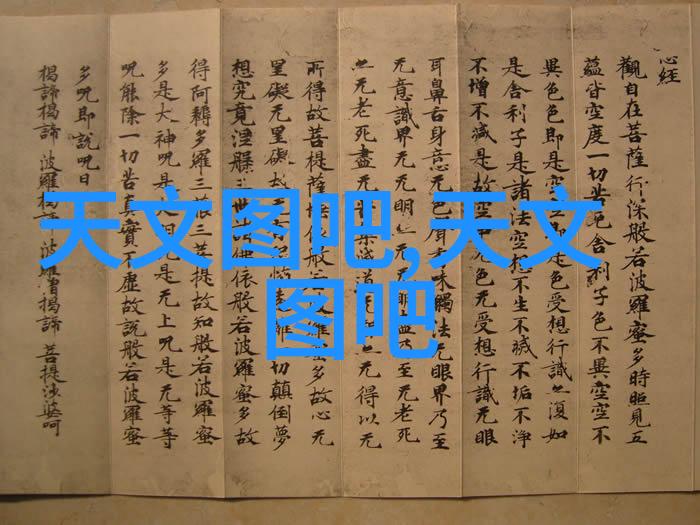 心经
觀自在菩薩行深般若波羅蜜多時照見五
蘊皆空度一切苦厄舍利子色不異空空不
異色色即是空空即是色受想行識亦復如
是舍利子是諸法空想不生不滅不垢不淨
不增不減是故空中无色无受想行識无眼
耳鼻舌身意无色聲香味觸法无眼界乃至
无意識界无无明亦无无明盡乃至无老死
亦无老死盡无苦集滅道无亦无得以无
所得故菩提薩埵依般若波羅蜜多故心无
罣礙无罣礙故无有恐怖離一切顛倒夢
想究竟涅槃三世諸佛依般若波羅蜜多故
得阿耨多羅三藐三菩提故知般若波羅蜜
多是大神呪是大明呪是无上呪是无等等
呪能除一切苦真實不虛故說般若波羅蜜
多呪即說呪曰
揭諦揭諦 波羅揭諦 波羅僧揭諦 菩提娑婆呵
天文图吧,天文
图吧